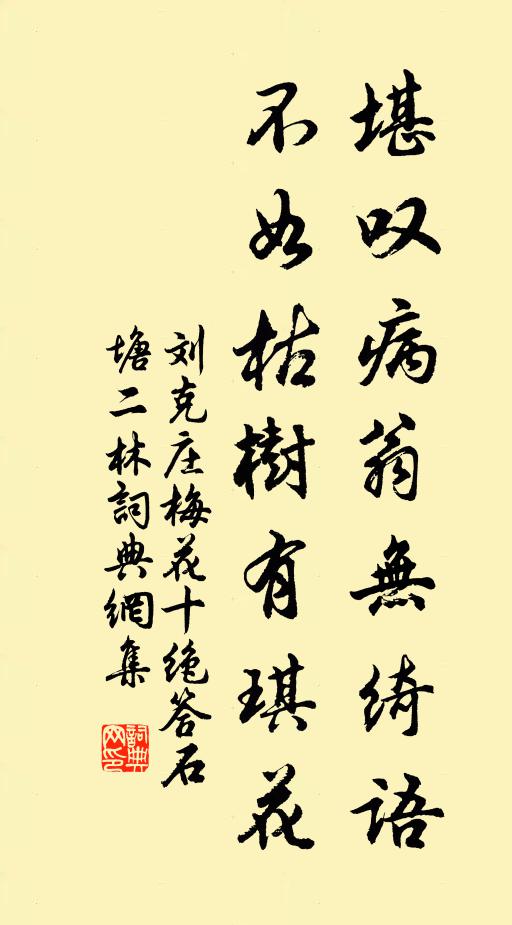 堪叹病翁無綺语
不如枯樹有琪花
刘克庄梅花十绝答石
塘二林詞典網集
詞典网印